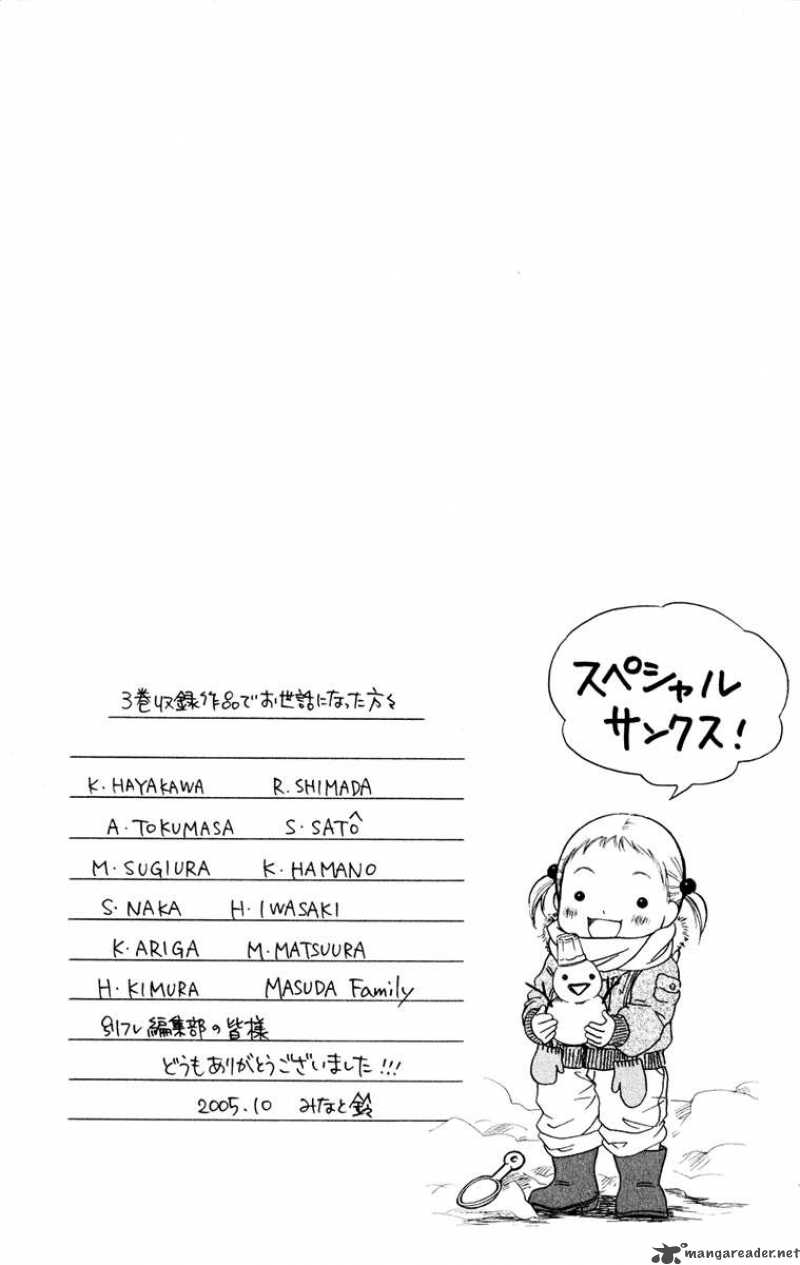 スペシャル
サンクス！
3巻収録作品でお世話になった方々
K. HAYAKAWA R. SHIMADA
A. TOKUMASA S. SATÔ
M. SUGIURA K. HAMANO
S. NAKA H. IWASAKI
K. ARIGA M. MATSUURA
H. KIMURA MASUDA Family
別フレ編集部の皆様
どうもありがとうございました!!!
2005.10 みなと鈴
mangareader.net